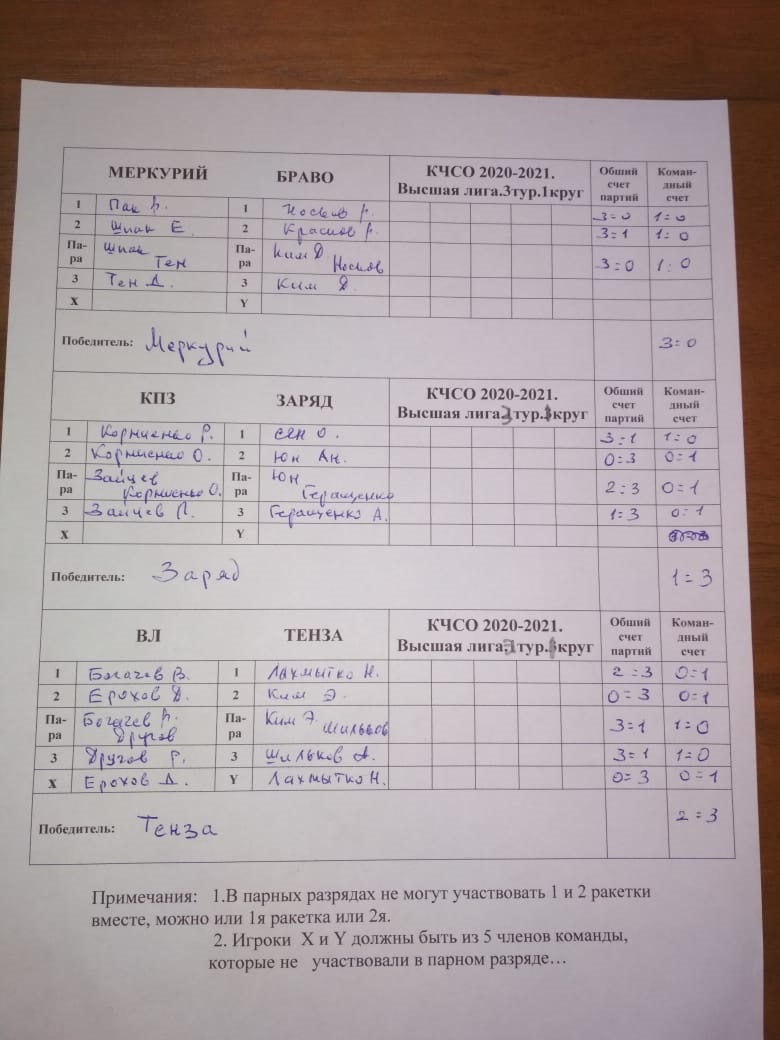 МЕРКУРИЙ БРАВО КЧСО 2020-2021. Общий Коман-
Высшая лига.3тур.1круг счет дный
партий счет
1 Пак В. 1 Носков Р. 3=0 1=0
2 Шпак Е. 2 Краснов Р. 3=1 1=0
Па- Шпак Па- Ким Д
ра Тен ра Носков 3=0 1=0
3 Тен Д. 3 Ким Д.
X Y
Победитель: Меркурий 3=0
КПЗ ЗАРЯД КЧСО 2020-2021. Общий Коман-
Высшая лига.3тур.1круг счет дный
партий счет
1 Корниенко Р. 1 Сен О. 3=1 1=0
2 Корниенко О. 2 Юн Ан. 0=3 0=1
Па- Зайцев Па- Юн
ра Корниенко О. ра Геращенко 2=3 0=1
3 Зайцев П. 3 Геращенко А. 1=3 0=1
X Y
Победитель: Заряд 1=3
ВЛ ТЕНЗА КЧСО 2020-2021. Общий Коман-
Высшая лига.3тур.1круг счет дный
партий счет
1 Богачев В. 1 Лахмытко Н. 2=3 0=1
2 Ерохов Д. 2 Ким Э. 0=3 0=1
Па- Богачев В. Па- Ким Э.
ра Другов ра Шильков 3=1 1=0
3 Другов Р. 3 Шильков А. 3=1 1=0
X Ерохов Д. Y Лахмытко Н. 0=3 0=1
Победитель: Тенза 2=3
Примечания: 1.В парных разрядах не могут участвовать 1 и 2 ракетки
вместе, можно или 1я ракетка или 2я.
2. Игроки X и Y должны быть из 5 членов команды,
которые не участвовали в парном разряде…